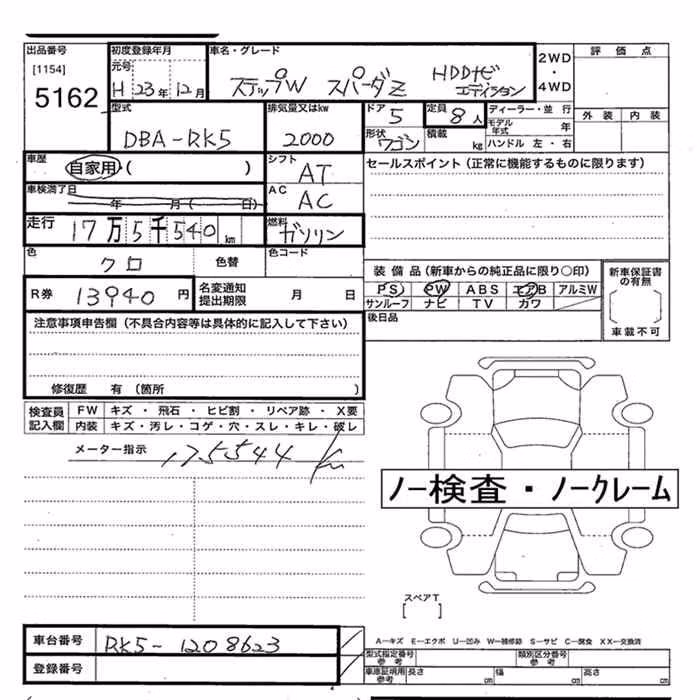 出品番号
[1154]
5162
初度登録年月
元号
H 23年 12月
車名・グレード
ステップW スパーダZ HDDナビ エディション
2WD
・
4WD
評価点
外装 内装
型式
DBA-RK5
排気量又はkw
2000
ドア 5
定員 8人
形状 ワゴン
積載 kg
ディーラー・並行
モデル年式 年
ハンドル 左・右
車歴
自家用・( )
シフト
AT
セールスポイント(正常に機能するものに限ります)
車検満了日
年 月( 日)
AC
AC
走行 17万5千540km
燃料
ガソリン
色
クロ
色替
色コード
装備品(新車からの純正品に限り○印)
PS PW ABS エアB アルミW
サンルーフ ナビ TV カワ
新車保証書の有無
車載不可
R券 13940円
名変通知提出期限 月 日
後日品
注意事項申告欄(不具合内容等は具体的に記入して下さい)
修復歴 有(箇所 )
検査員記入欄
FW キズ・飛石・ヒビ割・リペア跡・X要
内装 キズ・汚レ・コゲ・穴・スレ・キレ・破レ
メーター指示 175544 km
ノー検査・ノークレーム
スペアT
[ ]
車台番号 RK5-1208623
登録番号
A―キズ E―エクボ U―凹み W―補修跡 S―サビ C―腐食 XX―交換済
型式指定番号 参考
類別区分番号 参考
車庫証明用 参考 長さ cm 幅 cm 高さ cm